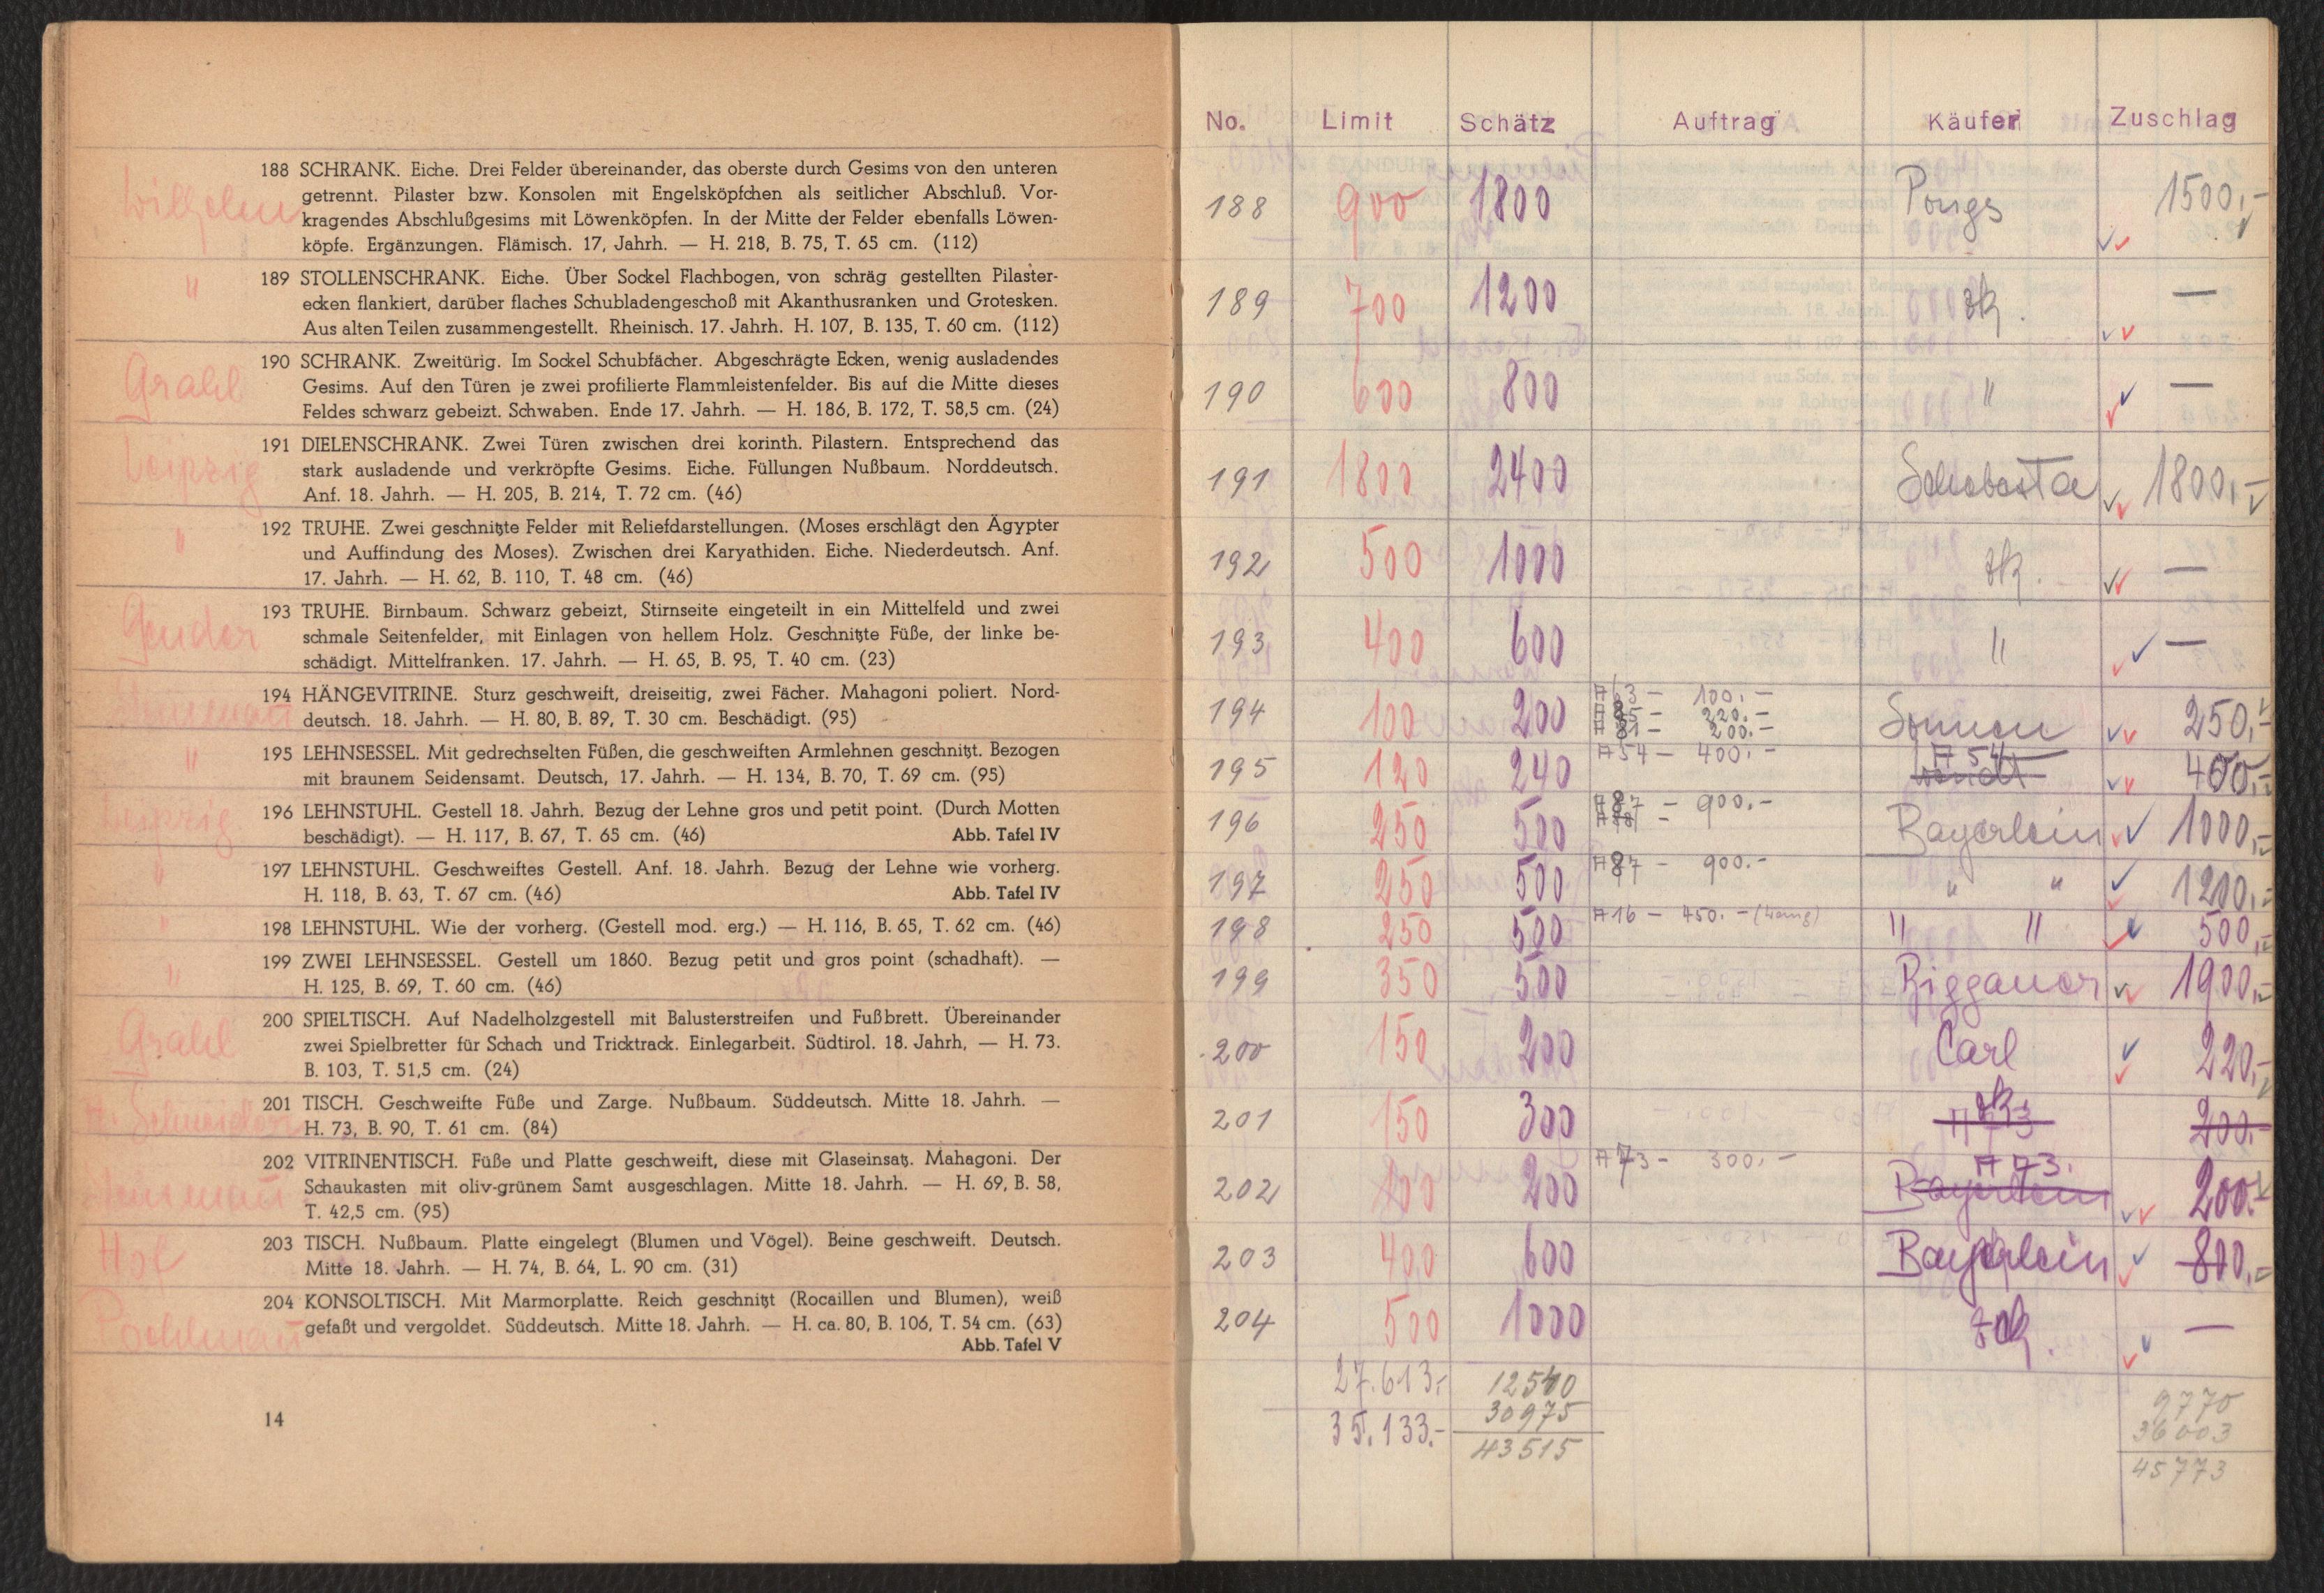 Wilhelm
188 SCHRANK. Eiche. Drei Felder übereinander, das oberste durch Gesims von den unteren
getrennt. Pilaster bzw. Konsolen mit Engelsköpfchen als seitlicher Abschluß. Vor-
kragendes Abschlußgesims mit Löwenköpfen. In der Mitte der Felder ebenfalls Löwen-
köpfe. Ergänzungen. Flämisch. 17, Jahrh. — H. 218, B. 75, T. 65 cm. (112)
"
189 STOLLENSCHRANK. Eiche. Über Sockel Flachbogen, von schräg gestellten Pilaster-
ecken flankiert, darüber flaches Schubladengeschoß mit Akanthusranken und Grotesken.
Aus alten Teilen zusammengestellt. Rheinisch. 17. Jahrh. H. 107, B. 135, T. 60 cm. (112)
Grahl
190 SCHRANK. Zweitürig. Im Sockel Schubfächer. Abgeschrägte Ecken, wenig ausladendes
Gesims. Auf den Türen je zwei profilierte Flammleistenfelder. Bis auf die Mitte dieses
Feldes schwarz gebeizt. Schwaben. Ende 17. Jahrh. — H. 186, B. 172, T. 58,5 cm. (24)
Leipzig
191 DIELENSCHRANK. Zwei Türen zwischen drei korinth. Pilastern. Entsprechend das
stark ausladende und verkröpfte Gesims. Eiche. Füllungen Nußbaum. Norddeutsch.
Anf. 18. Jahrh. — H. 205, B. 214, T. 72 cm. (46)
"
192 TRUHE. Zwei geschnitzte Felder mit Reliefdarstellungen. (Moses erschlägt den Ägypter
und Auffindung des Moses). Zwischen drei Karyathiden. Eiche. Niederdeutsch. Anf.
17. Jahrh. — H. 62, B. 110, T. 48 cm. (46)
193 TRUHE. Birnbaum. Schwarz gebeizt, Stirnseite eingeteilt in ein Mittelfeld und zwei
schmale Seitenfelder, mit Einlagen von hellem Holz. Geschnitzte Füße, der linke be-
schädigt. Mittelfranken. 17. Jahrh. — H. 65, B. 95, T. 40 cm. (23)
194 HÄNGEVITRINE. Sturz geschweift, dreiseitig, zwei Fächer. Mahagoni poliert. Nord-
deutsch. 18. Jahrh. — H. 80, B. 89, T. 30 cm. Beschädigt. (95)
"
195 LEHNSESSEL. Mit gedrechselten Füßen, die geschweiften Armlehnen geschnitzt. Bezogen
mit braunem Seidensamt. Deutsch, 17. Jahrh. — H. 134, B. 70, T. 69 cm. (95)
Leipzig
196 LEHNSTUHL. Gestell 18. Jahrh. Bezug der Lehne gros und petit point. (Durch Motten
beschädigt). — H. 117, B. 67, T. 65 cm. (46) Abb. Tafel IV
"
197 LEHNSTUHL. Geschweiftes Gestell. Anf. 18. Jahrh. Bezug der Lehne wie vorherg.
H. 118, B. 63, T. 67 cm. (46) Abb. Tafel IV
"
198 LEHNSTUHL. Wie der vorherg. (Gestell mod. erg.) — H. 116, B. 65, T. 62 cm. (46)
"
199 ZWEI LEHNSESSEL. Gestell um 1860. Bezug petit und gros point (schadhaft). —
H. 125, B. 69, T. 60 cm. (46)
Grahl
200 SPIELTISCH. Auf Nadelholzgestell mit Balusterstreifen und Fußbrett. Übereinander
zwei Spielbretter für Schach und Tricktrack. Einlegarbeit. Südtirol. 18. Jahrh, — H. 73.
B. 103, T. 51,5 cm. (24)
A. Schneider
201 TISCH. Geschweifte Füße und Zarge. Nußbaum. Süddeutsch. Mitte 18. Jahrh. —
H. 73, B. 90, T. 61 cm. (84)
202 VITRINENTISCH. Füße und Platte geschweift, diese mit Glaseinsatz. Mahagoni. Der
Schaukasten mit oliv-grünem Samt ausgeschlagen. Mitte 18. Jahrh. — H. 69, B. 58,
T. 42,5 cm. (95)
Hof
203 TISCH. Nußbaum. Platte eingelegt (Blumen und Vögel). Beine geschweift. Deutsch.
Mitte 18. Jahrh. — H. 74, B. 64, L. 90 cm. (31)
204 KONSOLTISCH. Mit Marmorplatte. Reich geschnitzt (Rocaillen und Blumen), weiß
gefaßt und vergoldet. Süddeutsch. Mitte 18. Jahrh. — H. ca. 80, B. 106, T. 54 cm. (63)
Abb. Tafel V
14
No. Limit Schätz Auftrag Käufer Zuschlag
188 900 1800 Pongs 1500,-
189 700 1200 zk. —
190 600 800 " —
191 1800 2400 1800,-
192 500 1000 zk. —
193 400 600 " —
194 100 200 A63 - 100.- 250,-
220.-
200.-
195 120 240 A54 - 400.- A54 400,-
196 250 500 A87 - 900.- Bayerlein 1000,-
197 250 500 A87 - 900.- " " 1200,-
198 250 500 A16 - 450.- " " 500,-
199 350 500 Riggauer 1900,-
200 150 200 Carl 220,-
201 150 300 zk. A73 200.-
202 100 200 A73 - 300.- A73. Bayerlein 200.-
203 400 600 Bayerlein 800,-
204 500 1000 zk. —
27.613,- 12540 9770
35.133.- 30975 36003
43515 45773